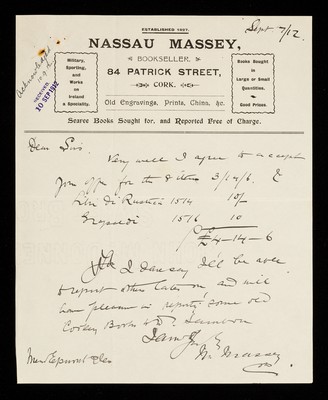 Sept 7/12
Acknowledged
RECEIVED
10 SEP 1912
ESTABLISHED 1887.
NASSAU MASSEY,
BOOKSELLER,
84 PATRICK STREET,
CORK.
Military,
Sporting,
and
Works
on
Ireland
a Speciality.
Books Bought
in
Large or Small
Quantities.
Good Prices.
Old Engravings, Prints, China, &c.
Scarce Books Sought for, and Reported Free of Charge.
Dear Sirs
Very well I agree to accept
your offer for the 8 items 3/14/6. &
Libri di 1514 10/-
1516 10
£4-14-6
I daresay I'll be able
to report others later on, and will
have pleasure in reporting some old
Books
I am
N. Massey